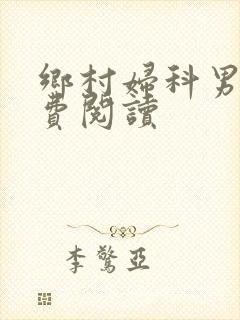 鄉村婦科男
費閱讀
李驚亞